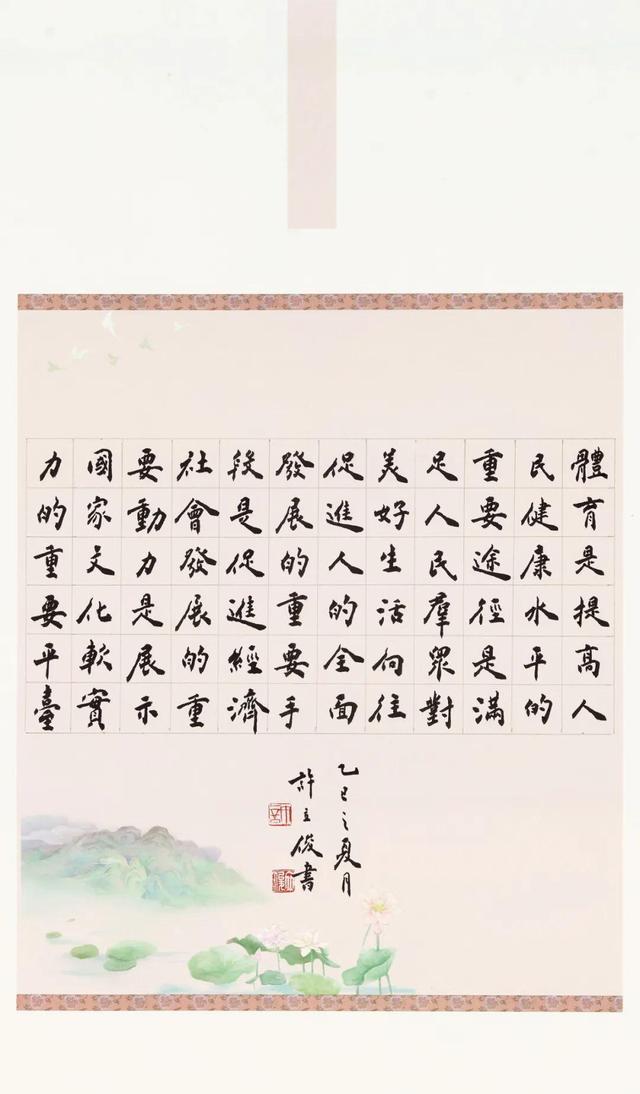 體育是提高人
民健康水平的
重要途徑是滿
足人民羣眾對
美好生活向往
促進人的全面
發展的重要手
段是促進經濟
社會發展的重
要動力是展示
國家文化軟實
力的重要平臺
乙巳之夏月
許立俊書